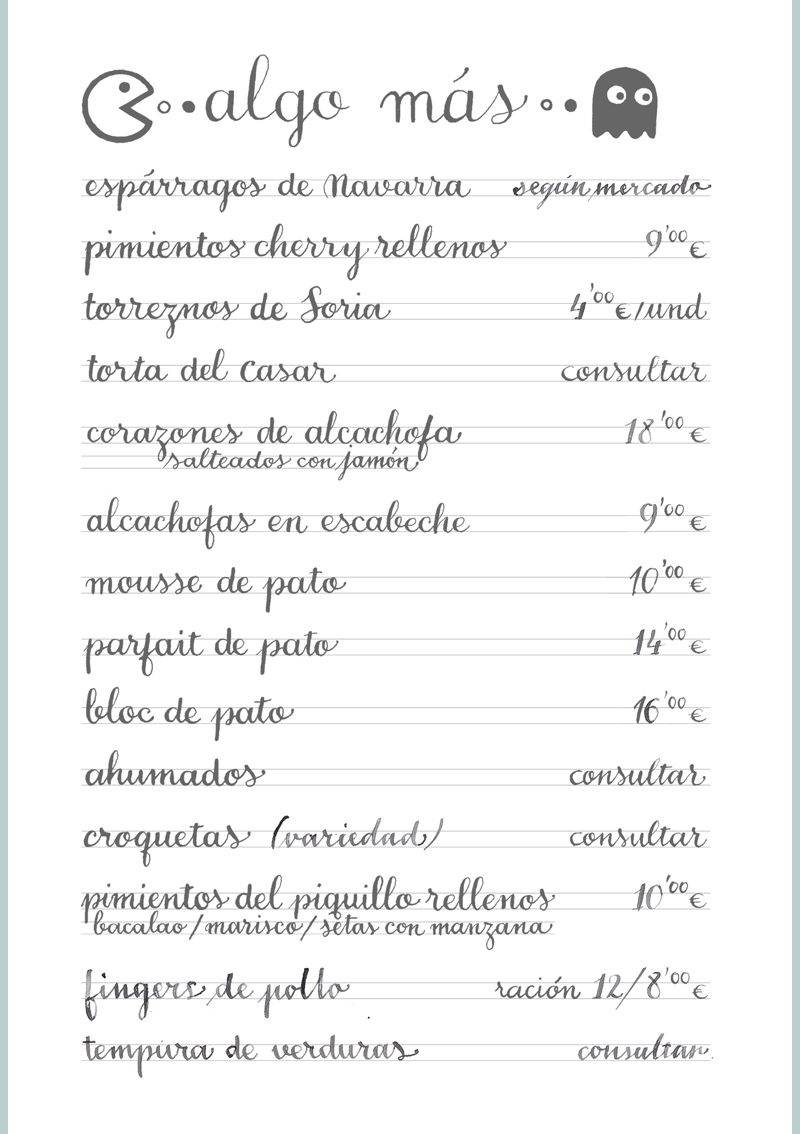 algo más
espárragos de Navarra según mercado
pimientos cherry rellenos 9'00 €
torreznos de Soria 4'00 €/und
torta del Casar consultar
corazones de alcachofa 18'00 €
salteados con jamón
alcachofas en escabeche 9'00 €
mousse de pato 10'00 €
parfait de pato 14'00 €
bloc de pato 16'00 €
ahumados consultar
croquetas (variedad) consultar
pimientos del piquillo rellenos 10'00 €
bacalao/marisco/setas con manzana
fingers de pollo ración 12/8'00 €
tempura de verduras consultar